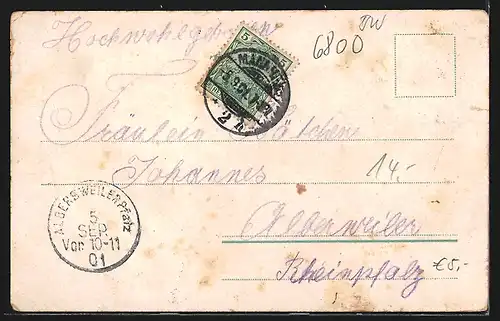 Hochwohlgeboren
6800
5
5
MANNHEIM
2
Fräulein Käthchen
Johannes
14.-
ALBERSWEILER Pfalz
5
SEP.
Vor 10-11
01
Albersweiler
Rheinpfalz
€5,-